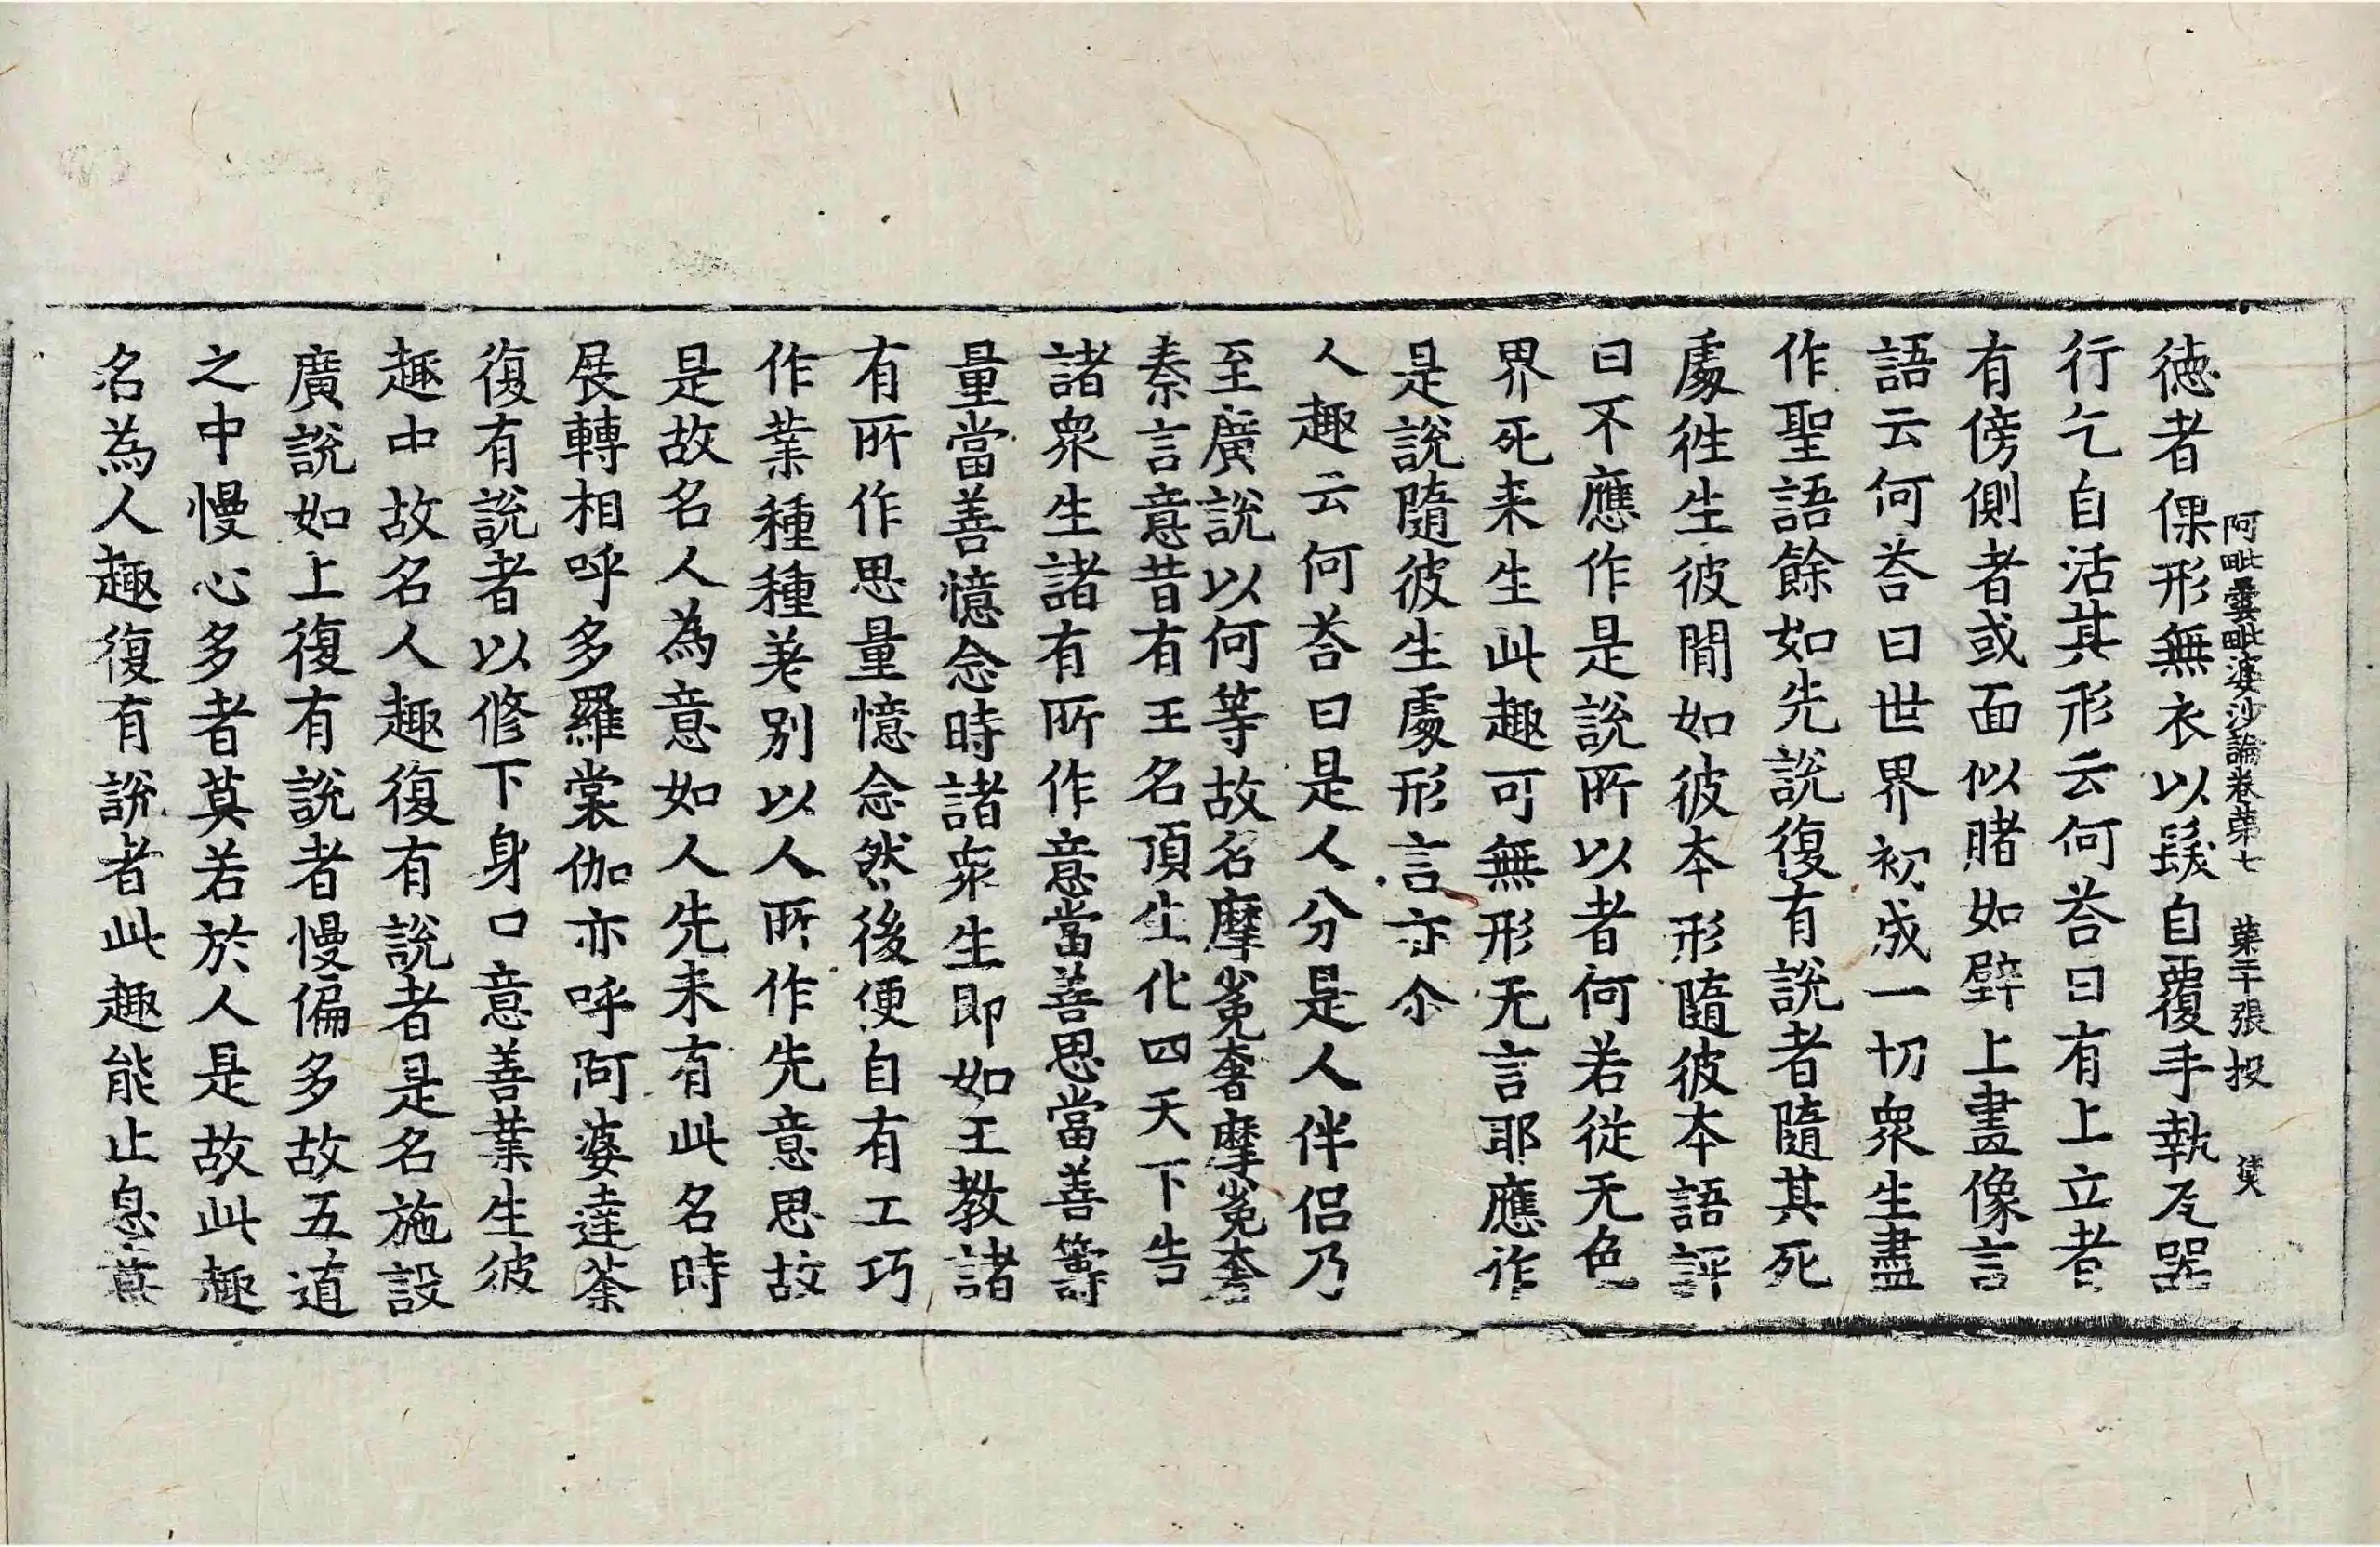 阿毗曇毗婆沙論卷第七 葉二十張 投
德者倮形無衣以髮自覆手執瓦器
行乞自活其形云何荅曰有上立者
有傍側者或面似賭如壁上畫像言
語云何荅曰世界初成一切衆生盡
作聖語餘如先說復有說者隨其死
處徃生彼間如彼本形隨彼本語評
曰不應作是說所以者何若從无色
界死来生此趣可無形无言耶應作
是說隨彼生處形言亦尒
人趣云何荅曰是人分是人伴侣乃
至廣說以何等故名摩㝹奢摩㝹奢
秦言意昔有王名頂生化四天下告
諸衆生諸有所作意當善思當善籌
量當善憶念時諸衆生即如王教諸
有所作思量憶念然後便自有工巧
作業種種差别以人所作先意思故
是故名人為意如人先未有此名時
展轉相呼多羅裳伽亦呼阿婆達荼
復有說者以修下身口意善業生彼
趣中故名人趣復有說者是名施設
廣說如上復有說者慢偏多故五道
之中慢心多者莫若於人是故此趣
名為人趣復有說者此趣能止息莫